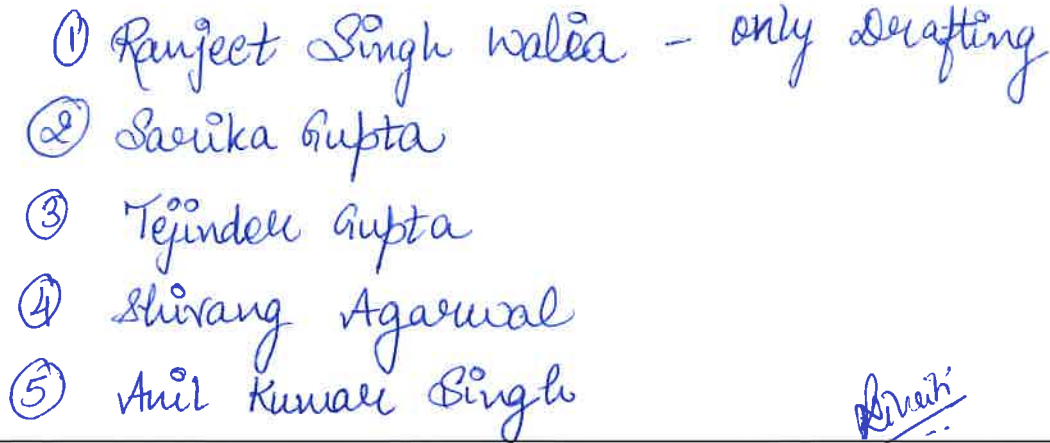 ① Ranjeet Singh Walia - only Drafting
② Sarika Gupta
③ Tejinder Gupta
④ Shivang Agarwal
⑤ Anil Kumar Singh